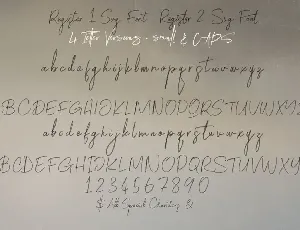 Register 1 Sng Font Register 2 Sng Font
4 Letter Versions - small & CAPS
abcdefghijklmnopqrstuvwxyz
ABCDEFGHIJKLMNOPQRSTUVWXYZ
abcdefghijklmnopqrstuvwxyz
ABCDEFGHIJKLMNOPQRSTUVWXYZ
1234567890